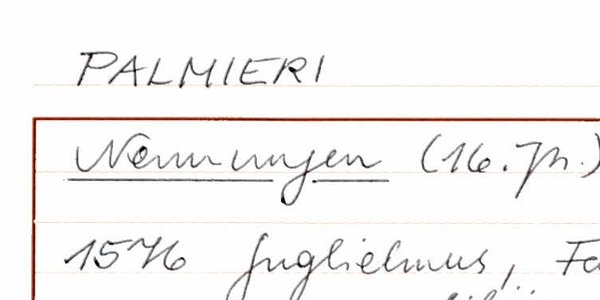 PALMIERI
Nennungen (16. Jh.)
1576 Guglielmus, Fa